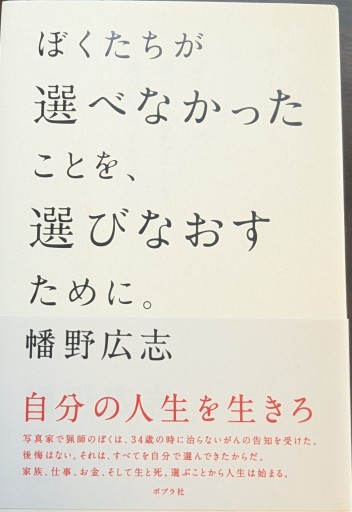 ぼくたちが
選べなかった
ことを、
選びなおす
ために。
幡野広志
自分の人生を生きろ
写真家で猟師のぼくは、34歳の時に治らないがんの告知を受けた。
後悔はない。それは、すべてを自分で選んできたからだ。
家族、仕事、お金、そして生と死。選ぶことから人生は始まる。
ポプラ社